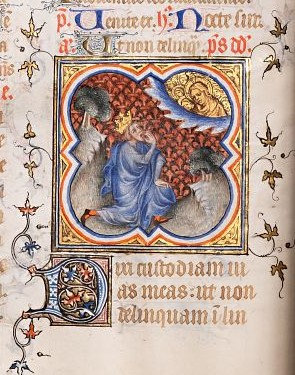 p. Venite ex. h. Nocte sur.
a. Ut non delinq. ps dd.
Dixi custodiam ui
as meas: ut non
delinquam i lin